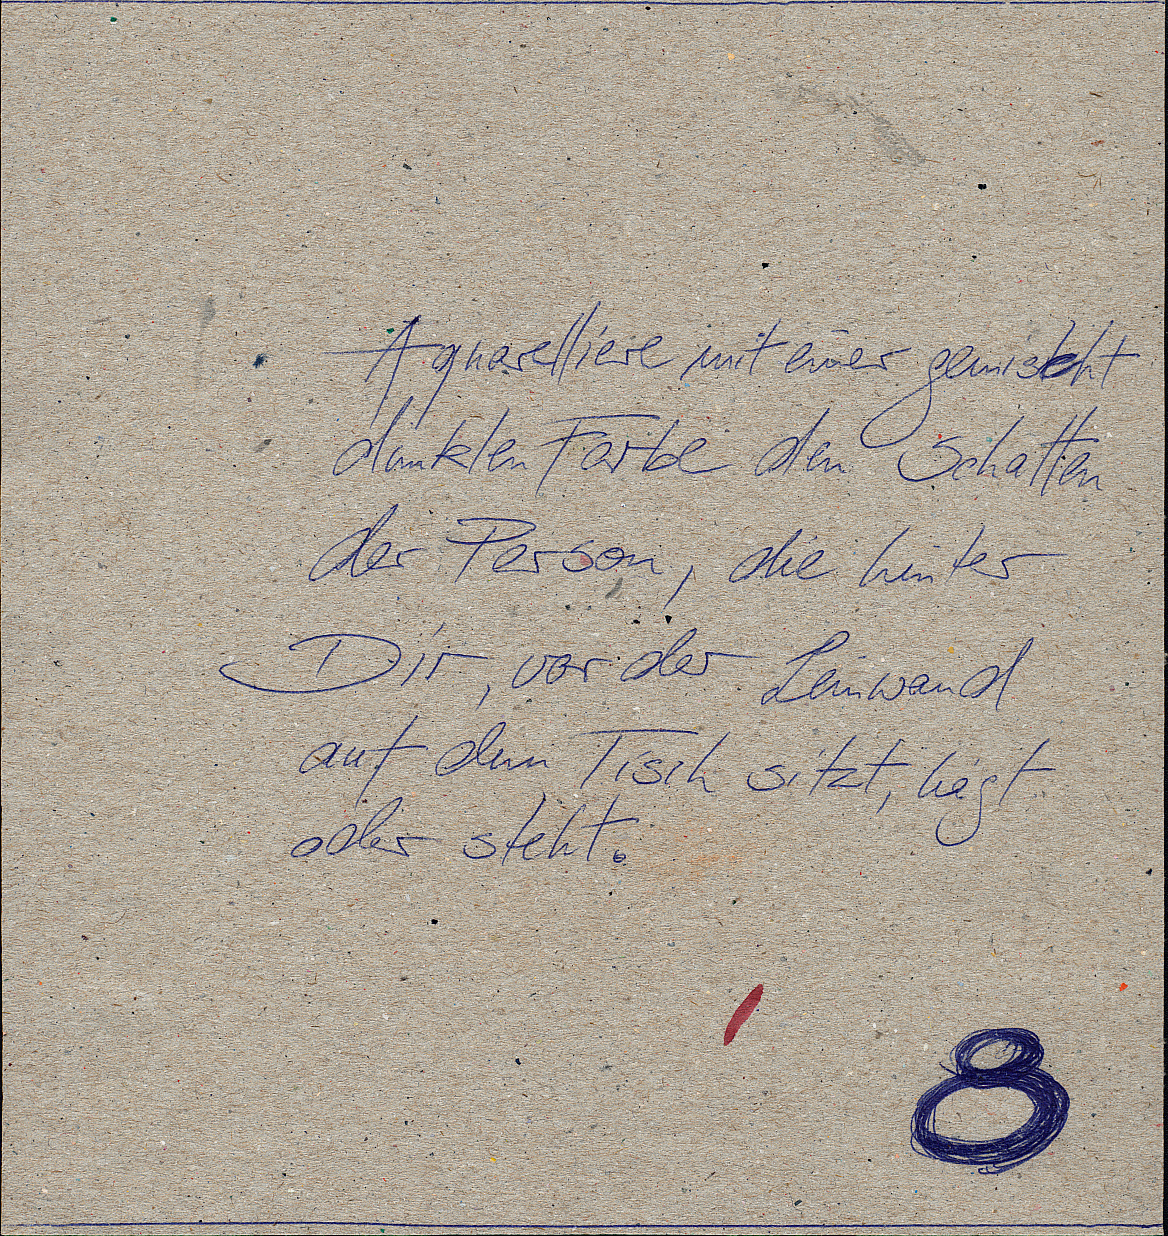 Aquarelliere mit einer gemischt
dunklen Farbe den Schatten
der Person, die hinter
Dir, vor der Leinwand
auf dem Tisch sitzt, liegt
oder steht.
8